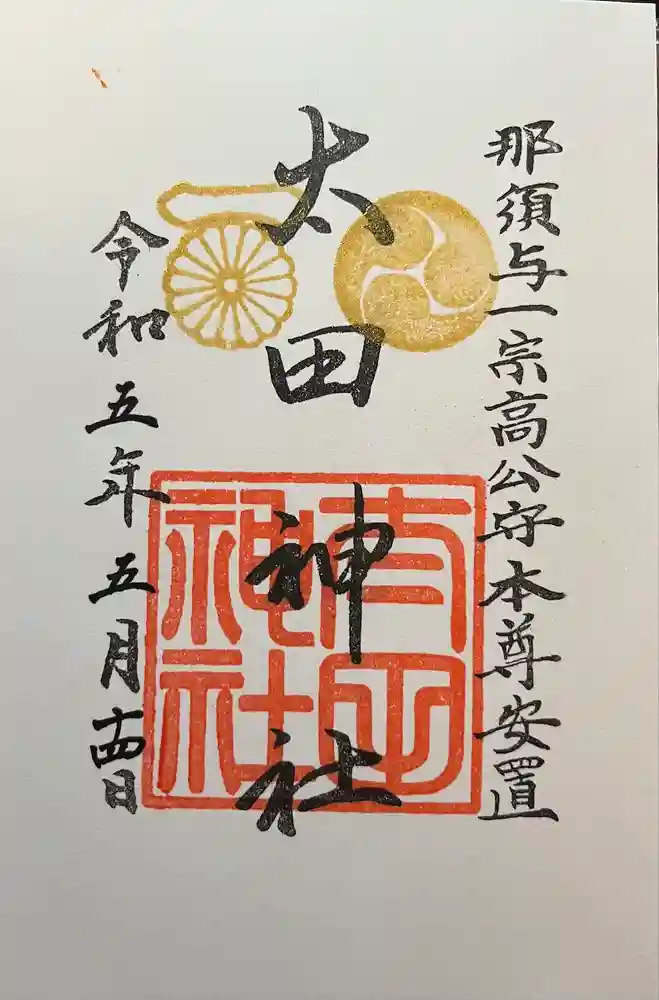 那須与一宗高公守本尊安置
太田神社
太田神社
令和五年五月十四日